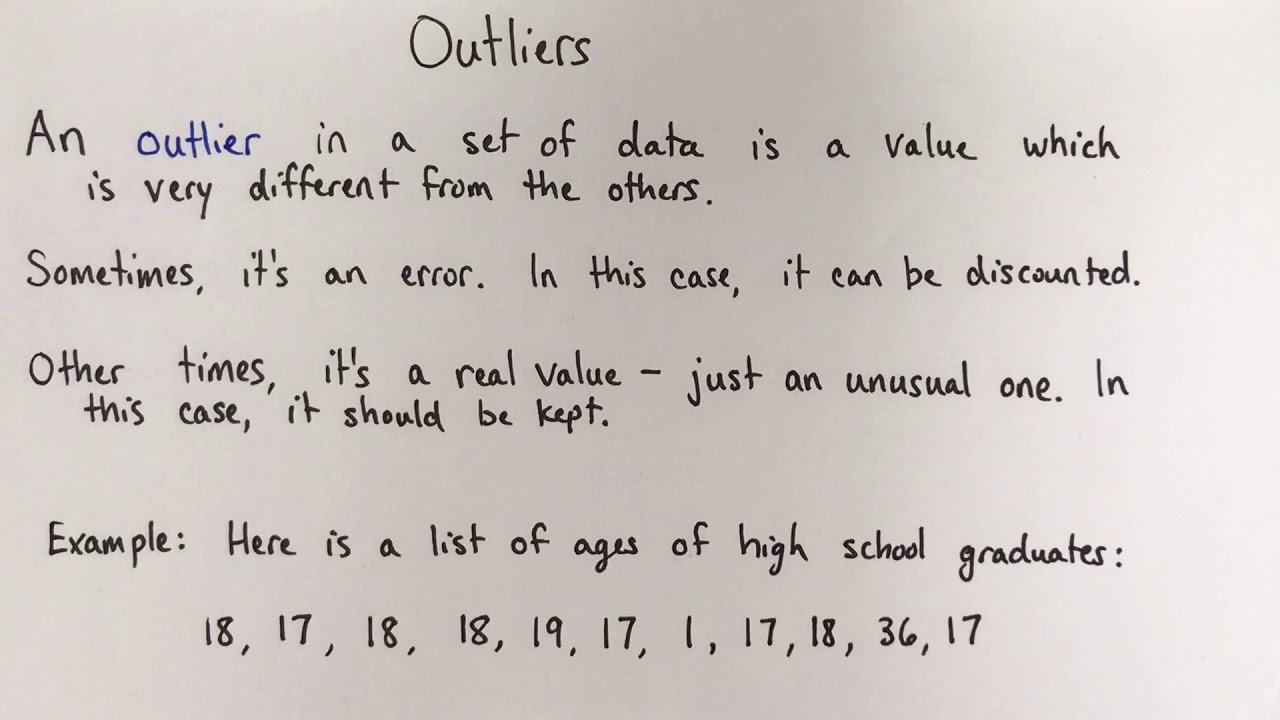 Outliers
An outlier in a set of data is a value which
is very different from the others.
Sometimes, it's an error. In this case, it can be discounted.
Other times, it's a real value - just an unusual one. In
this case, it should be kept.
Example: Here is a list of ages of high school graduates:
18, 17, 18, 18, 19, 17, 1, 17, 18, 36, 17